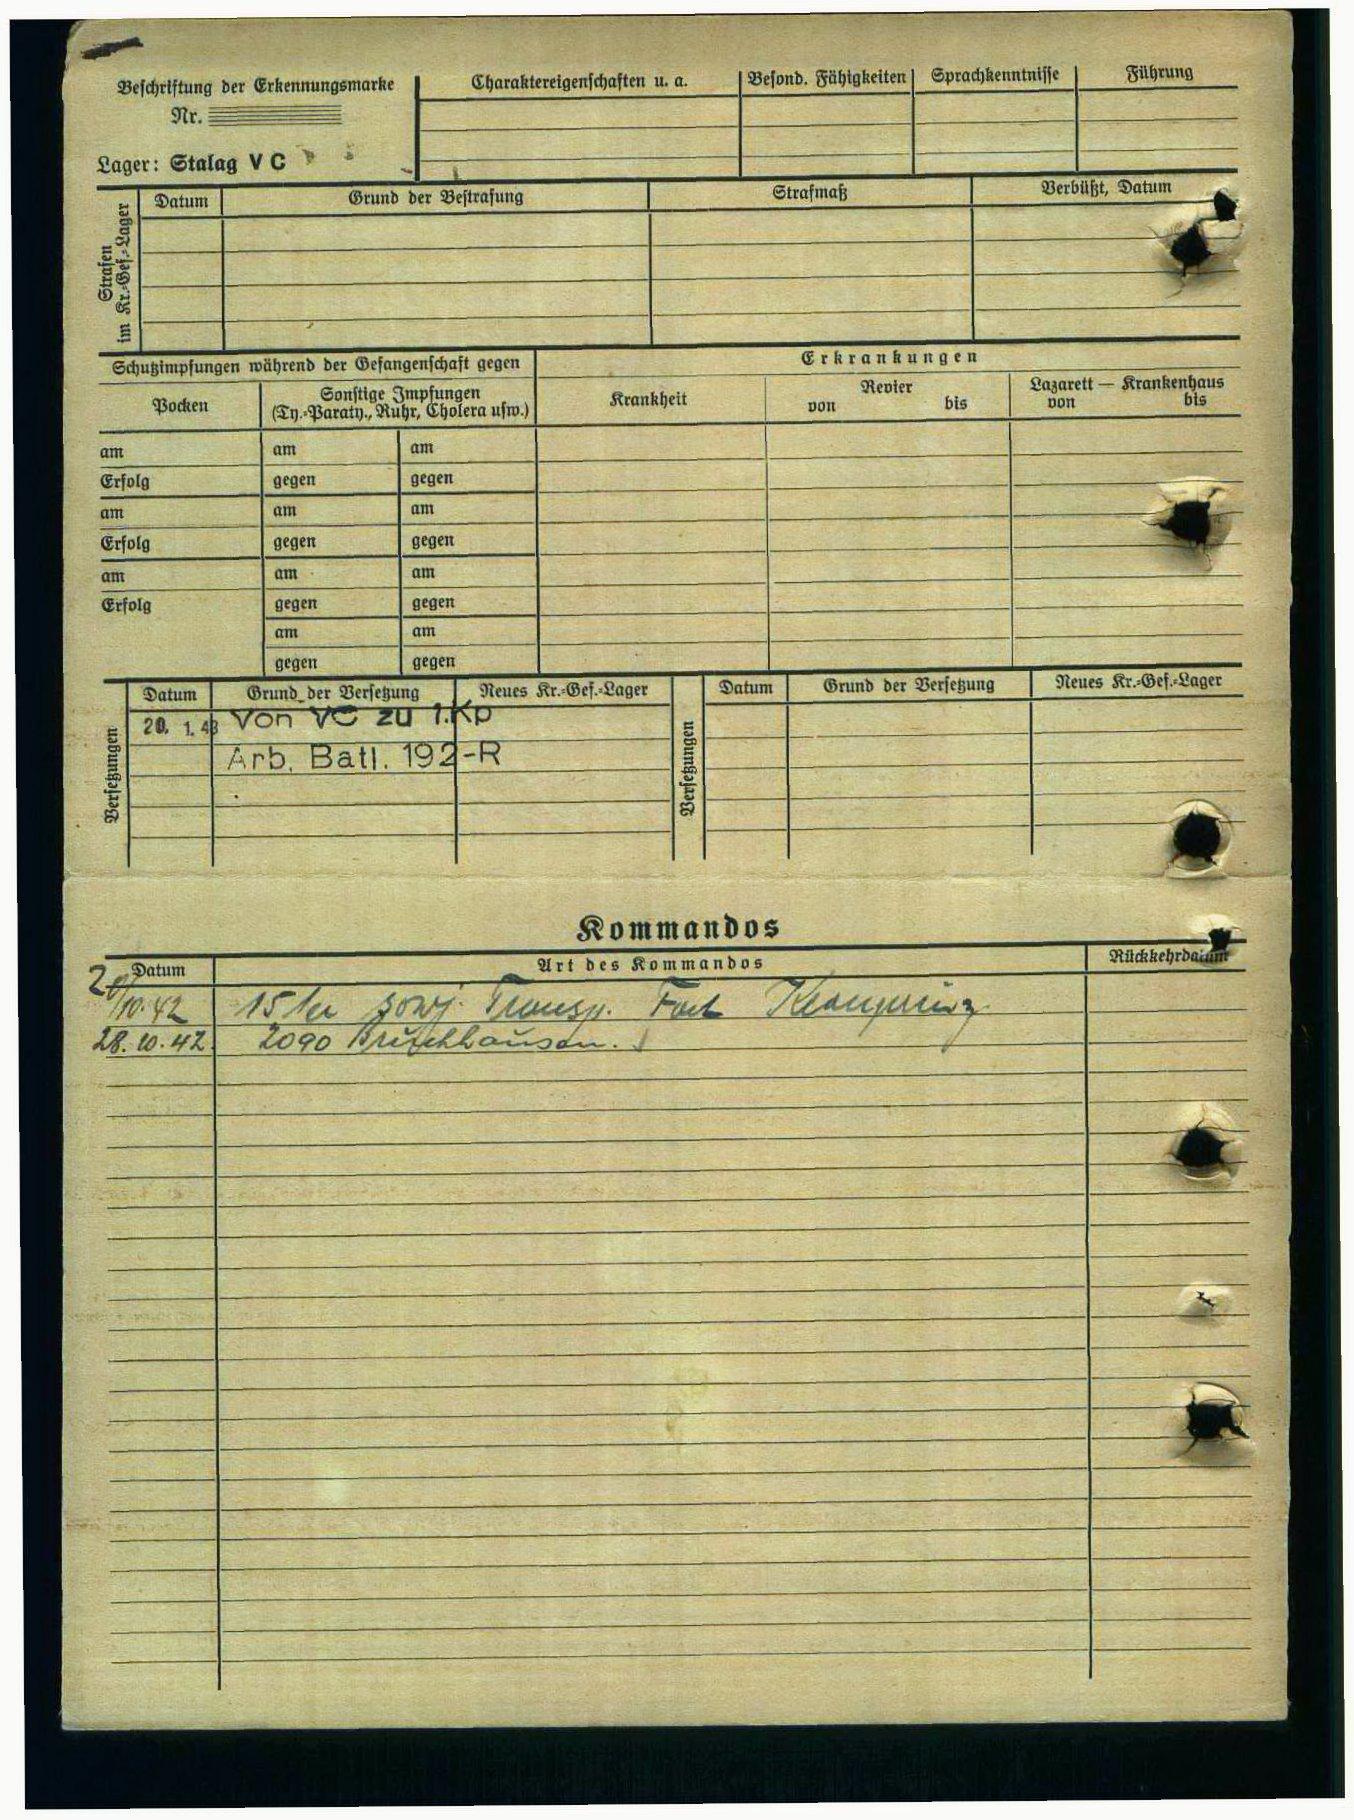 Beschriftung der Erkennungsmarke
Nr.
Lager: Stalag V C
Charaktereigenschaften u. a. Besond. Fähigkeiten Sprachkenntnisse Führung
Strafen im Kr.=Gef.=Lager
Datum Grund der Bestrafung Strafmaß Verbüßt, Datum
Schutzimpfungen während der Gefangenschaft gegen
Pocken Sonstige Impfungen
(Ty.=Paraty., Ruhr, Cholera usw.)
am am am
Erfolg gegen gegen
am am am
Erfolg gegen gegen
am am am
Erfolg gegen gegen
am am
gegen gegen
Erkrankungen
Krankheit Revier Lazarett — Krankenhaus
von bis von bis
Versetzungen
Datum Grund der Versetzung Neues Kr.=Gef.=Lager
20. 1. 43 Von VC zu 1.Kp
Arb. Batl. 192-R
Versetzungen
Datum Grund der Versetzung Neues Kr.=Gef.=Lager
Kommandos
Datum Art des Kommandos Rückkehrdatum
10.42 sowj. Transp.
28.10.42 2090